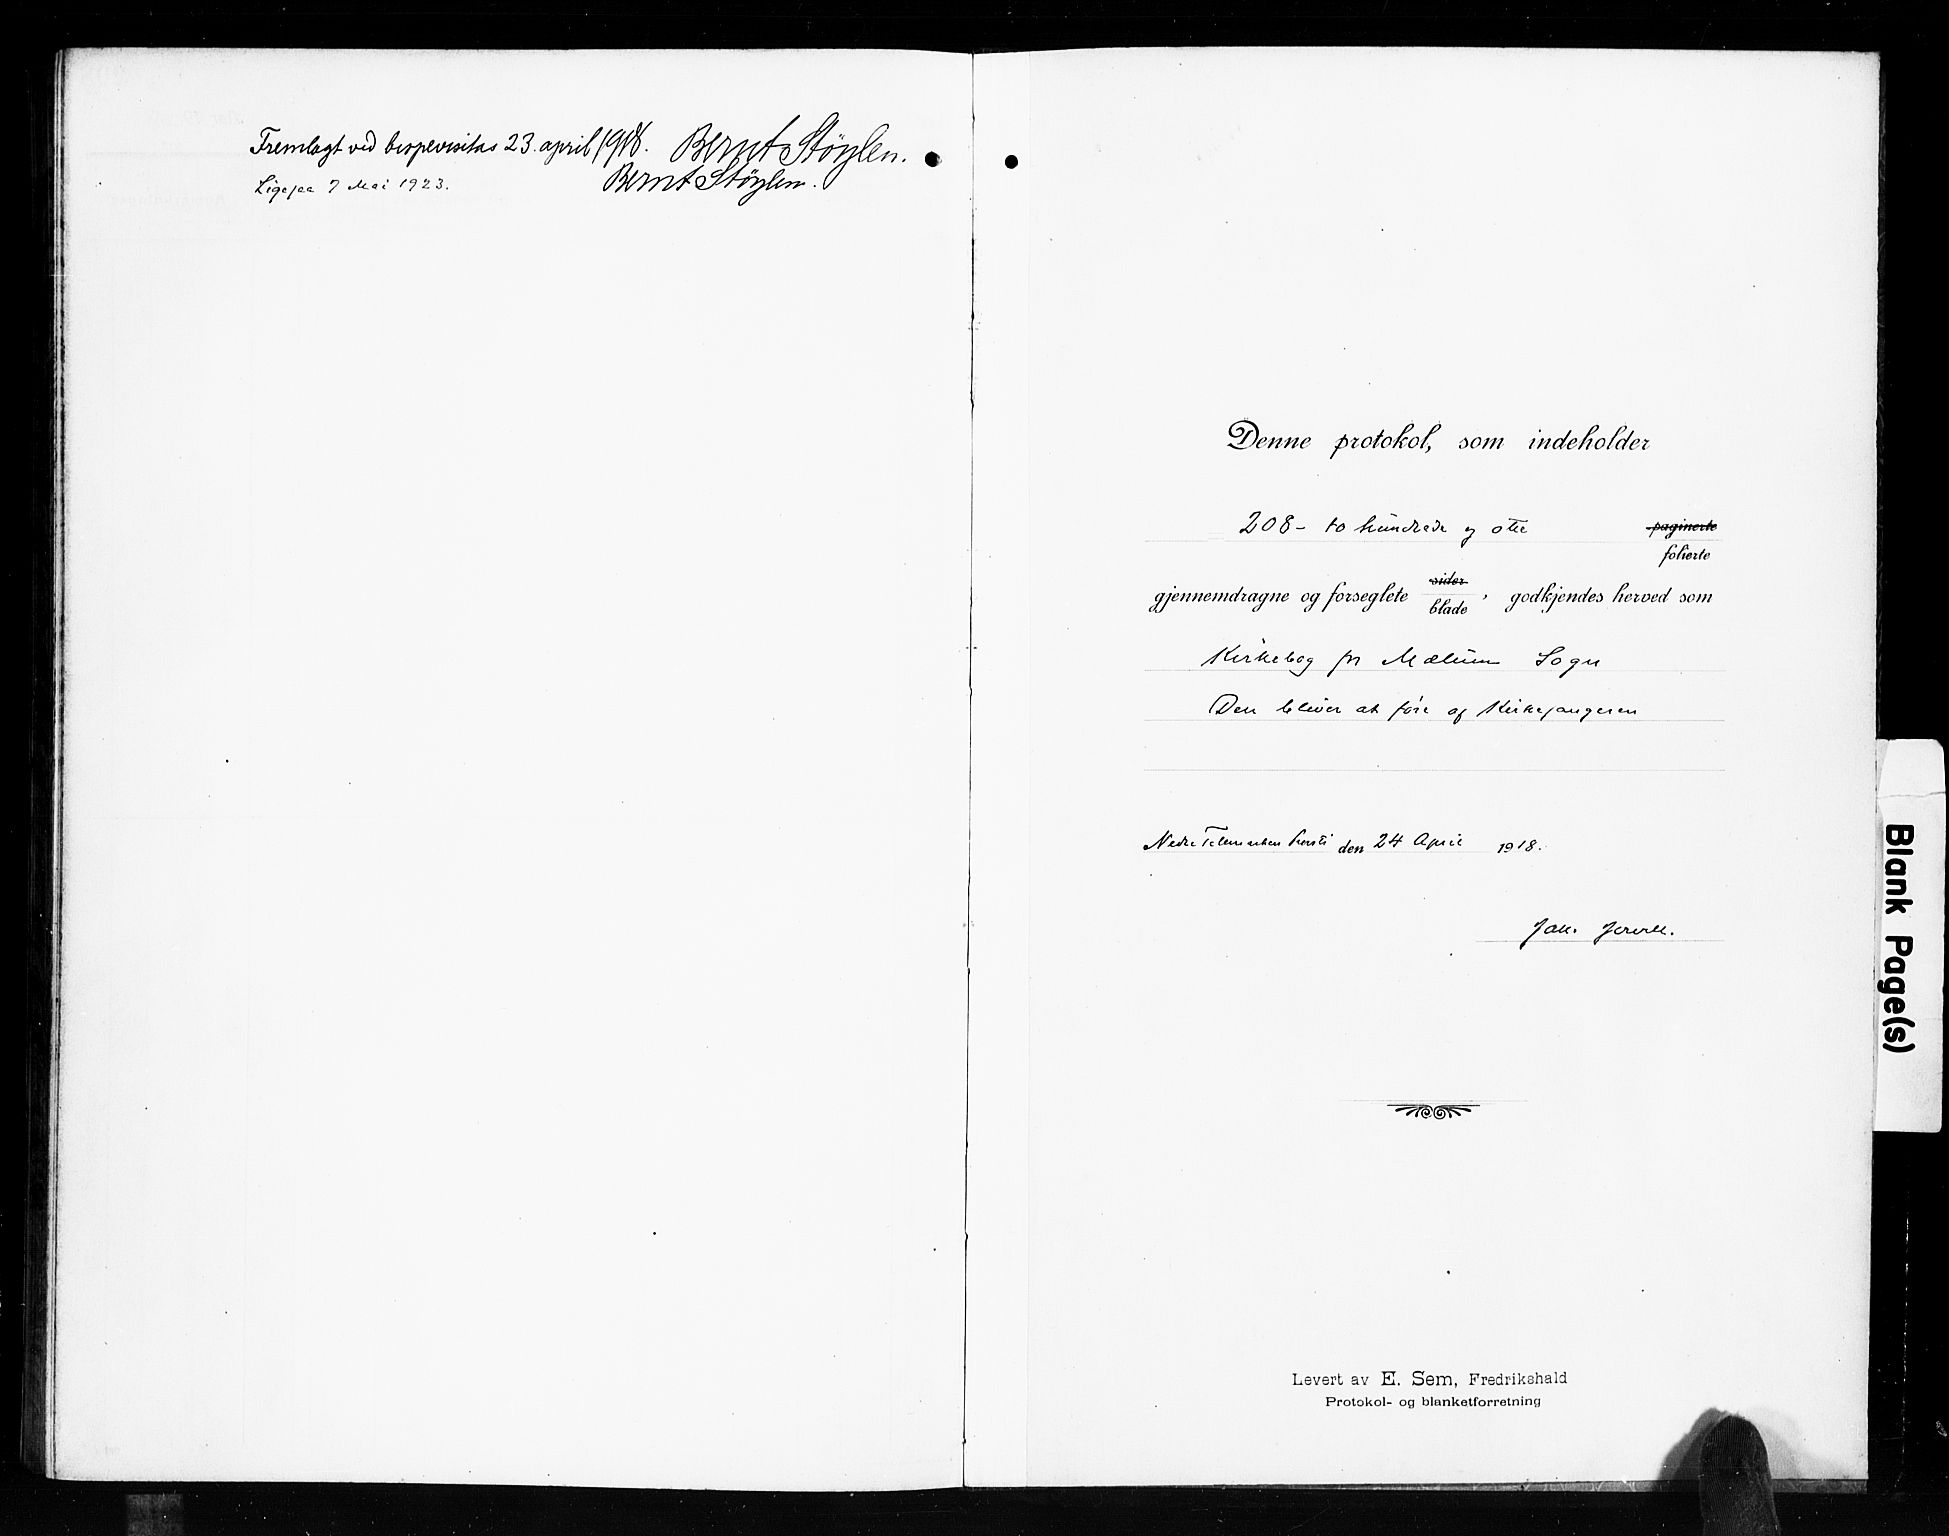 Fremlagt ved bispevisitas 23. april 1918. Bernt Støylen.
Ligesaa 7 Mai 1923. Bernt Støylen.
Denne protokol, som indeholder
208 - to hundrede og otte paginerte
folierte
gjennemdragne og forseglete sider
blade, godkjendes herved som
Kirkebog for Mælum Sogn
Den bliver at føre af Kirkesangeren
Nedre Telemarken den 24 April 1918.
Levert av E. Sem, Fredrikshald
Protokol- og blanketforretning
Blank Page(s)